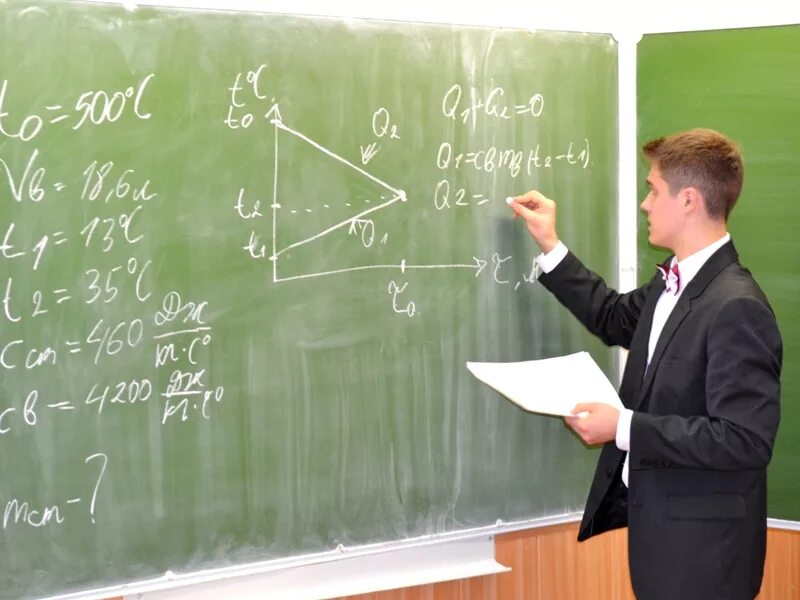 t0=500°C
Vв=18,6л
t1=13°C
t2=35°C
Cст=460 Дж/кг·C°
cв=4200 Дж/кг·C°
mст-?
t°C
t0
t2
t1
Q2
Q1
τ0
τ,
Q1+Q2=0
Q1=cвmв(t2-t1).
Q2=